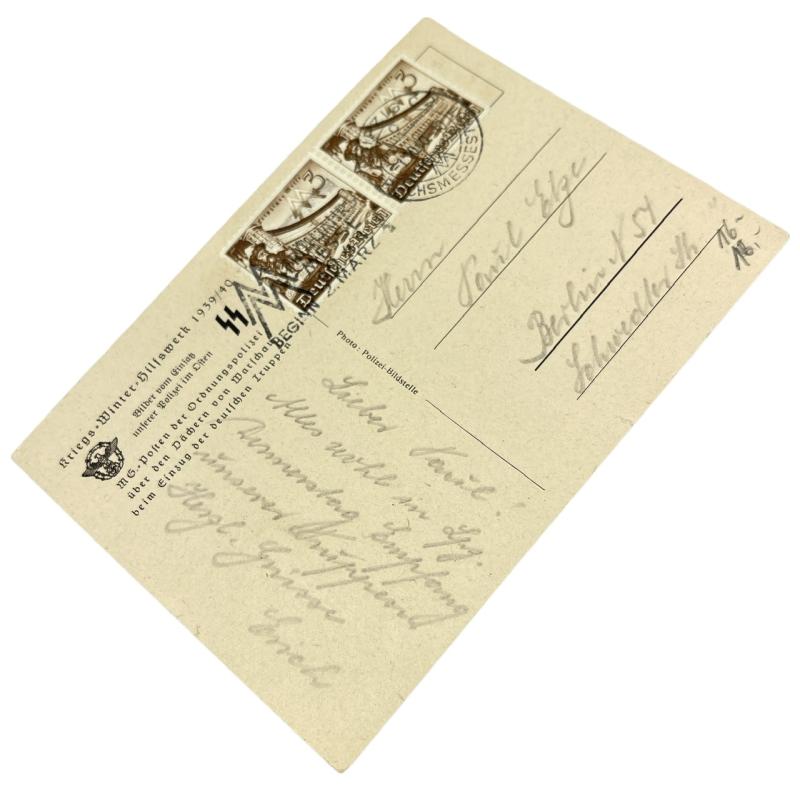 Kriegs-Winter-Hilfswerk 1939/40
Bilder vom Einsatz
unserer Polizei im Osten
MG.-Posten der Ordnungspolizei
über den Dächern von Warschau
beim Einzug der deutschen Truppen
3
Deutsches Reich
3
Deutsches Reich
REICHSMESSESTADT
BEGINN 3. MÄRZ
Photo: Polizei-Bildstelle
Herrn
Paul Etze
Berlin N 54
Schwedter Str.
16.-
18.-
Lieber Paul!
Alles wohl in Lpz.
Donnerstag Empfang
unserer Truppen
Herzl. Grüsse
Erich